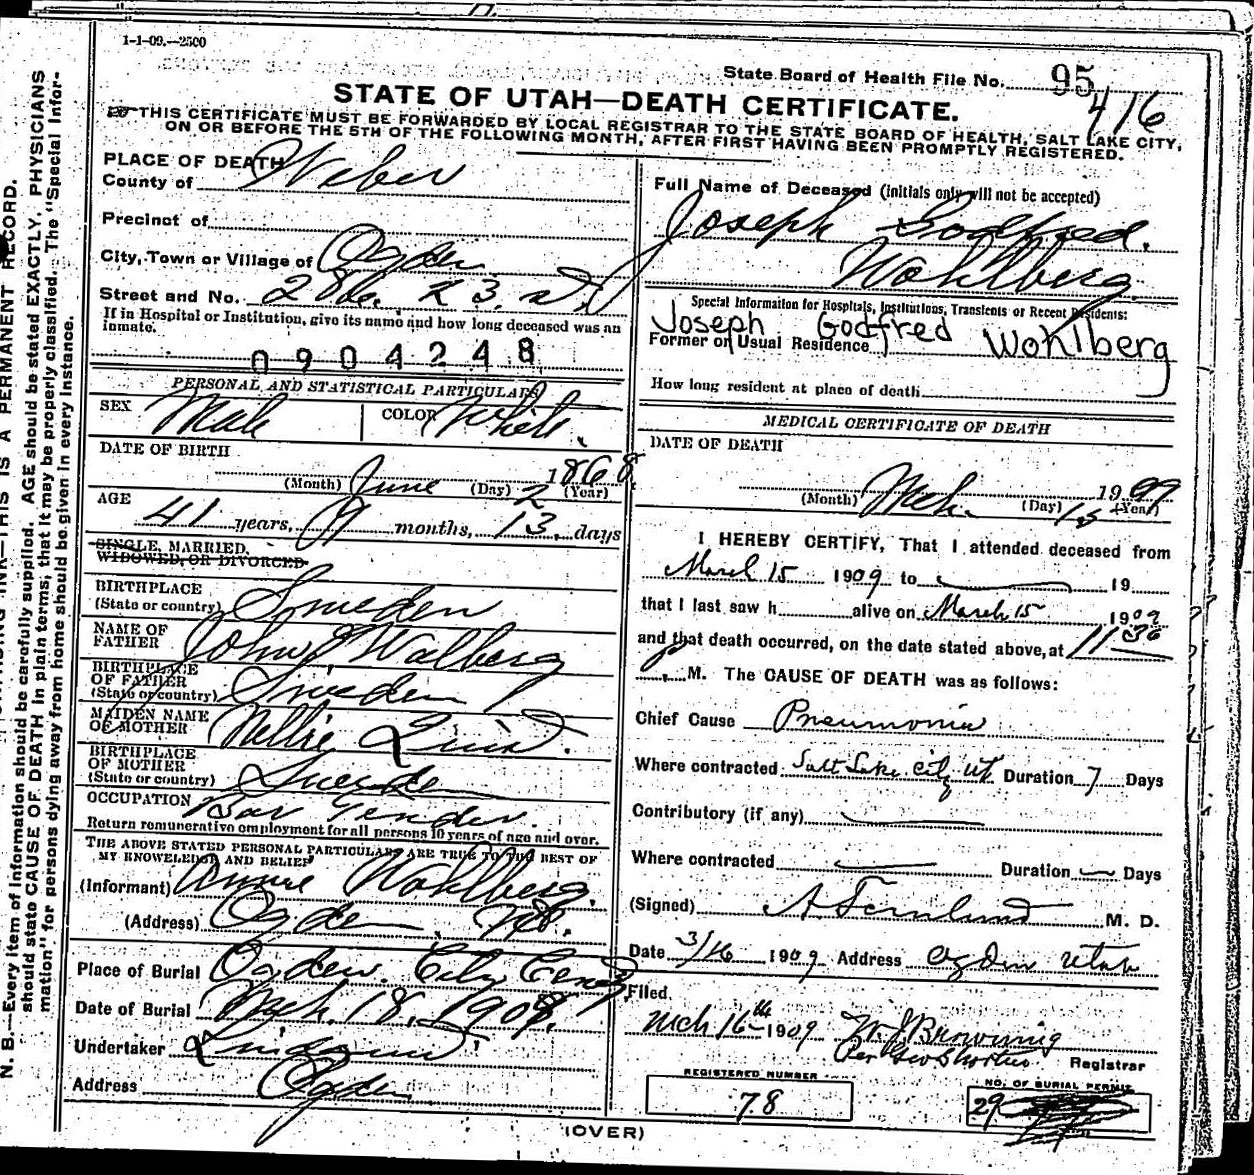 1-1-09.—2500
State Board of Health File No. 95 416
STATE OF UTAH—DEATH CERTIFICATE.
THIS CERTIFICATE MUST BE FORWARDED BY LOCAL REGISTRAR TO THE STATE BOARD OF HEALTH, SALT LAKE CITY,
ON OR BEFORE THE 5TH OF THE FOLLOWING MONTH, AFTER FIRST HAVING BEEN PROMPTLY REGISTERED.
N. B.—Every item of information should be carefully supplied. AGE should be stated EXACTLY. PHYSICIANS
should state CAUSE OF DEATH in plain terms, that it may be properly classified. The "Special Infor-
mation" for persons dying away from home should be given in every instance.
INK—THIS IS A PERMANENT RECORD.
PLACE OF DEATH
County of Weber
Precinct of
City, Town or Village of Ogden
Street and No. 23
If in Hospital or Institution, give its name and how long deceased was an
inmate.
0904248
PERSONAL AND STATISTICAL PARTICULARS
SEX Male COLOR White.
DATE OF BIRTH
(Month) June (Day) 2 1868 (Year)
AGE
41 years, 9 months, 13 days
SINGLE, MARRIED,
WIDOWED, OR DIVORCED
BIRTHPLACE
(State or country) Sweden
NAME OF
FATHER John Walberg
BIRTHPLACE
OF FATHER
(State or country) Sweden
MAIDEN NAME
OF MOTHER Nellie
BIRTHPLACE
OF MOTHER
(State or country) Sweden
OCCUPATION Bar Tender.
Return remunerative employment for all persons 10 years of age and over.
THE ABOVE STATED PERSONAL PARTICULARS ARE TRUE TO THE BEST OF
MY KNOWELEDGE AND BELIEF
(Informant) Annie Wohlberg.
(Address) Ogden,
Place of Burial Ogden City Cemty
Date of Burial Mch. 18, 1909.
Undertaker
Address Ogden
Full Name of Deceased (initials only will not be accepted)
Joseph Godfred.
Wohlberg.
Special Information for Hospitals, Institutions, Transients or Recent Residents:
Joseph Godfred Wohlberg
Former or Usual Residence
How long resident at place of death
MEDICAL CERTIFICATE OF DEATH
DATE OF DEATH
(Month) Mch. (Day) 15 1909 (Year)
I HEREBY CERTIFY, That I attended deceased from
March 15 1909 to 19
that I last saw h alive on March 15 1909
and that death occurred, on the date stated above, at 11 30
M. The CAUSE OF DEATH was as follows:
Chief Cause Pneumonia
Where contracted Salt Lake City Ut. Duration 7 Days
Contributory (if any)
Where contracted Duration Days
(Signed) M. D.
Date 3/16 1909 Address Ogden Utah
Filed
Mch 16th 1909 W. J. Browning
Per Registrar
REGISTERED NUMBER
78
NO. OF BURIAL PERMIT
29
(OVER)